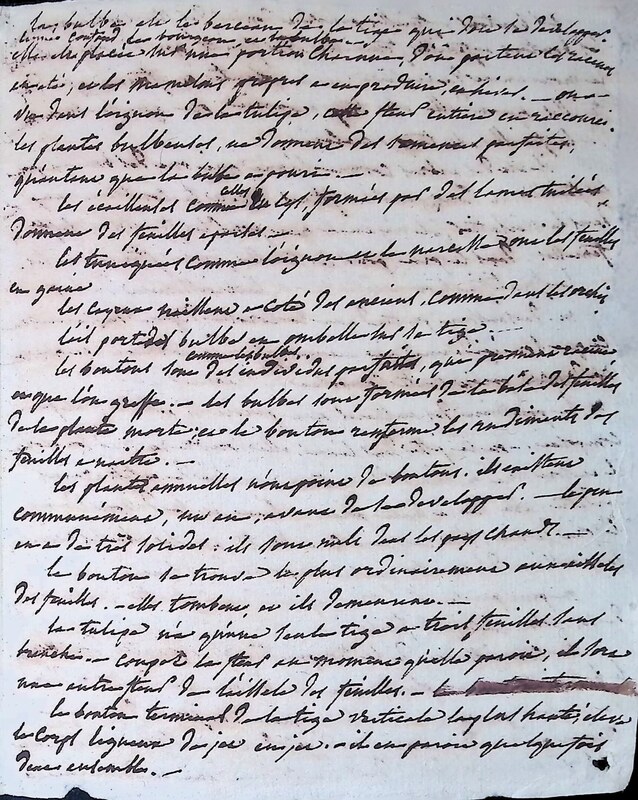 la bulbe est le berceau de la tige que doit se developper
comme contenu les bourgeons et la bulbe
elle est placée sur une portion charnue, d'où partent les racines
en été, et les mamelons propres a en produire en hiver. — on a
vu dans l'oignon de la tulipe, cette fleur entiere en raccourci.
les plantes bulbeuses, ne donnent des semences parfaites,
qu'autant que la bulbe a pouri. —
les écailleuses comme celles du lys, formées par des lames tuilées
donnent des feuilles eparses. —
les tuniquées comme l'oignon et le narcisse ont les feuilles
en gaine
les cayeux naissent a coté des anciens, comme dans les orchis
l'ail porte des bulbes en ombelle sur sa tige. —
les boutons sont comme les bulbes des individus parfaits, que prennent racine
ou que l'on greffe. — les bulbes sont formés de la base des feuilles
de la plante morte, et le bouton renferme les rudiments des
feuilles a naitre. —
les plantes annuelles n'ont point de boutons. ils existent
communément, un an, avant de se developper. —
en a de très solides : ils sont nuls dans les pays chauds. —
le bouton se trouve le plus ordinairement aux aisselles
des feuilles. — elles tombent, et ils demeurent. —
la tulipe n'a qu'une seule tige a trois feuilles sans
branches. — coupez la fleur au moment qu'elle paroit, il sort
une autre fleur de l'aisselle des feuilles. —
le bouton terminal de la tige verticale la plus haute, eleve
le corps ligneux de jet en jet. — il en paroit quelquefois
deux ensembles. —